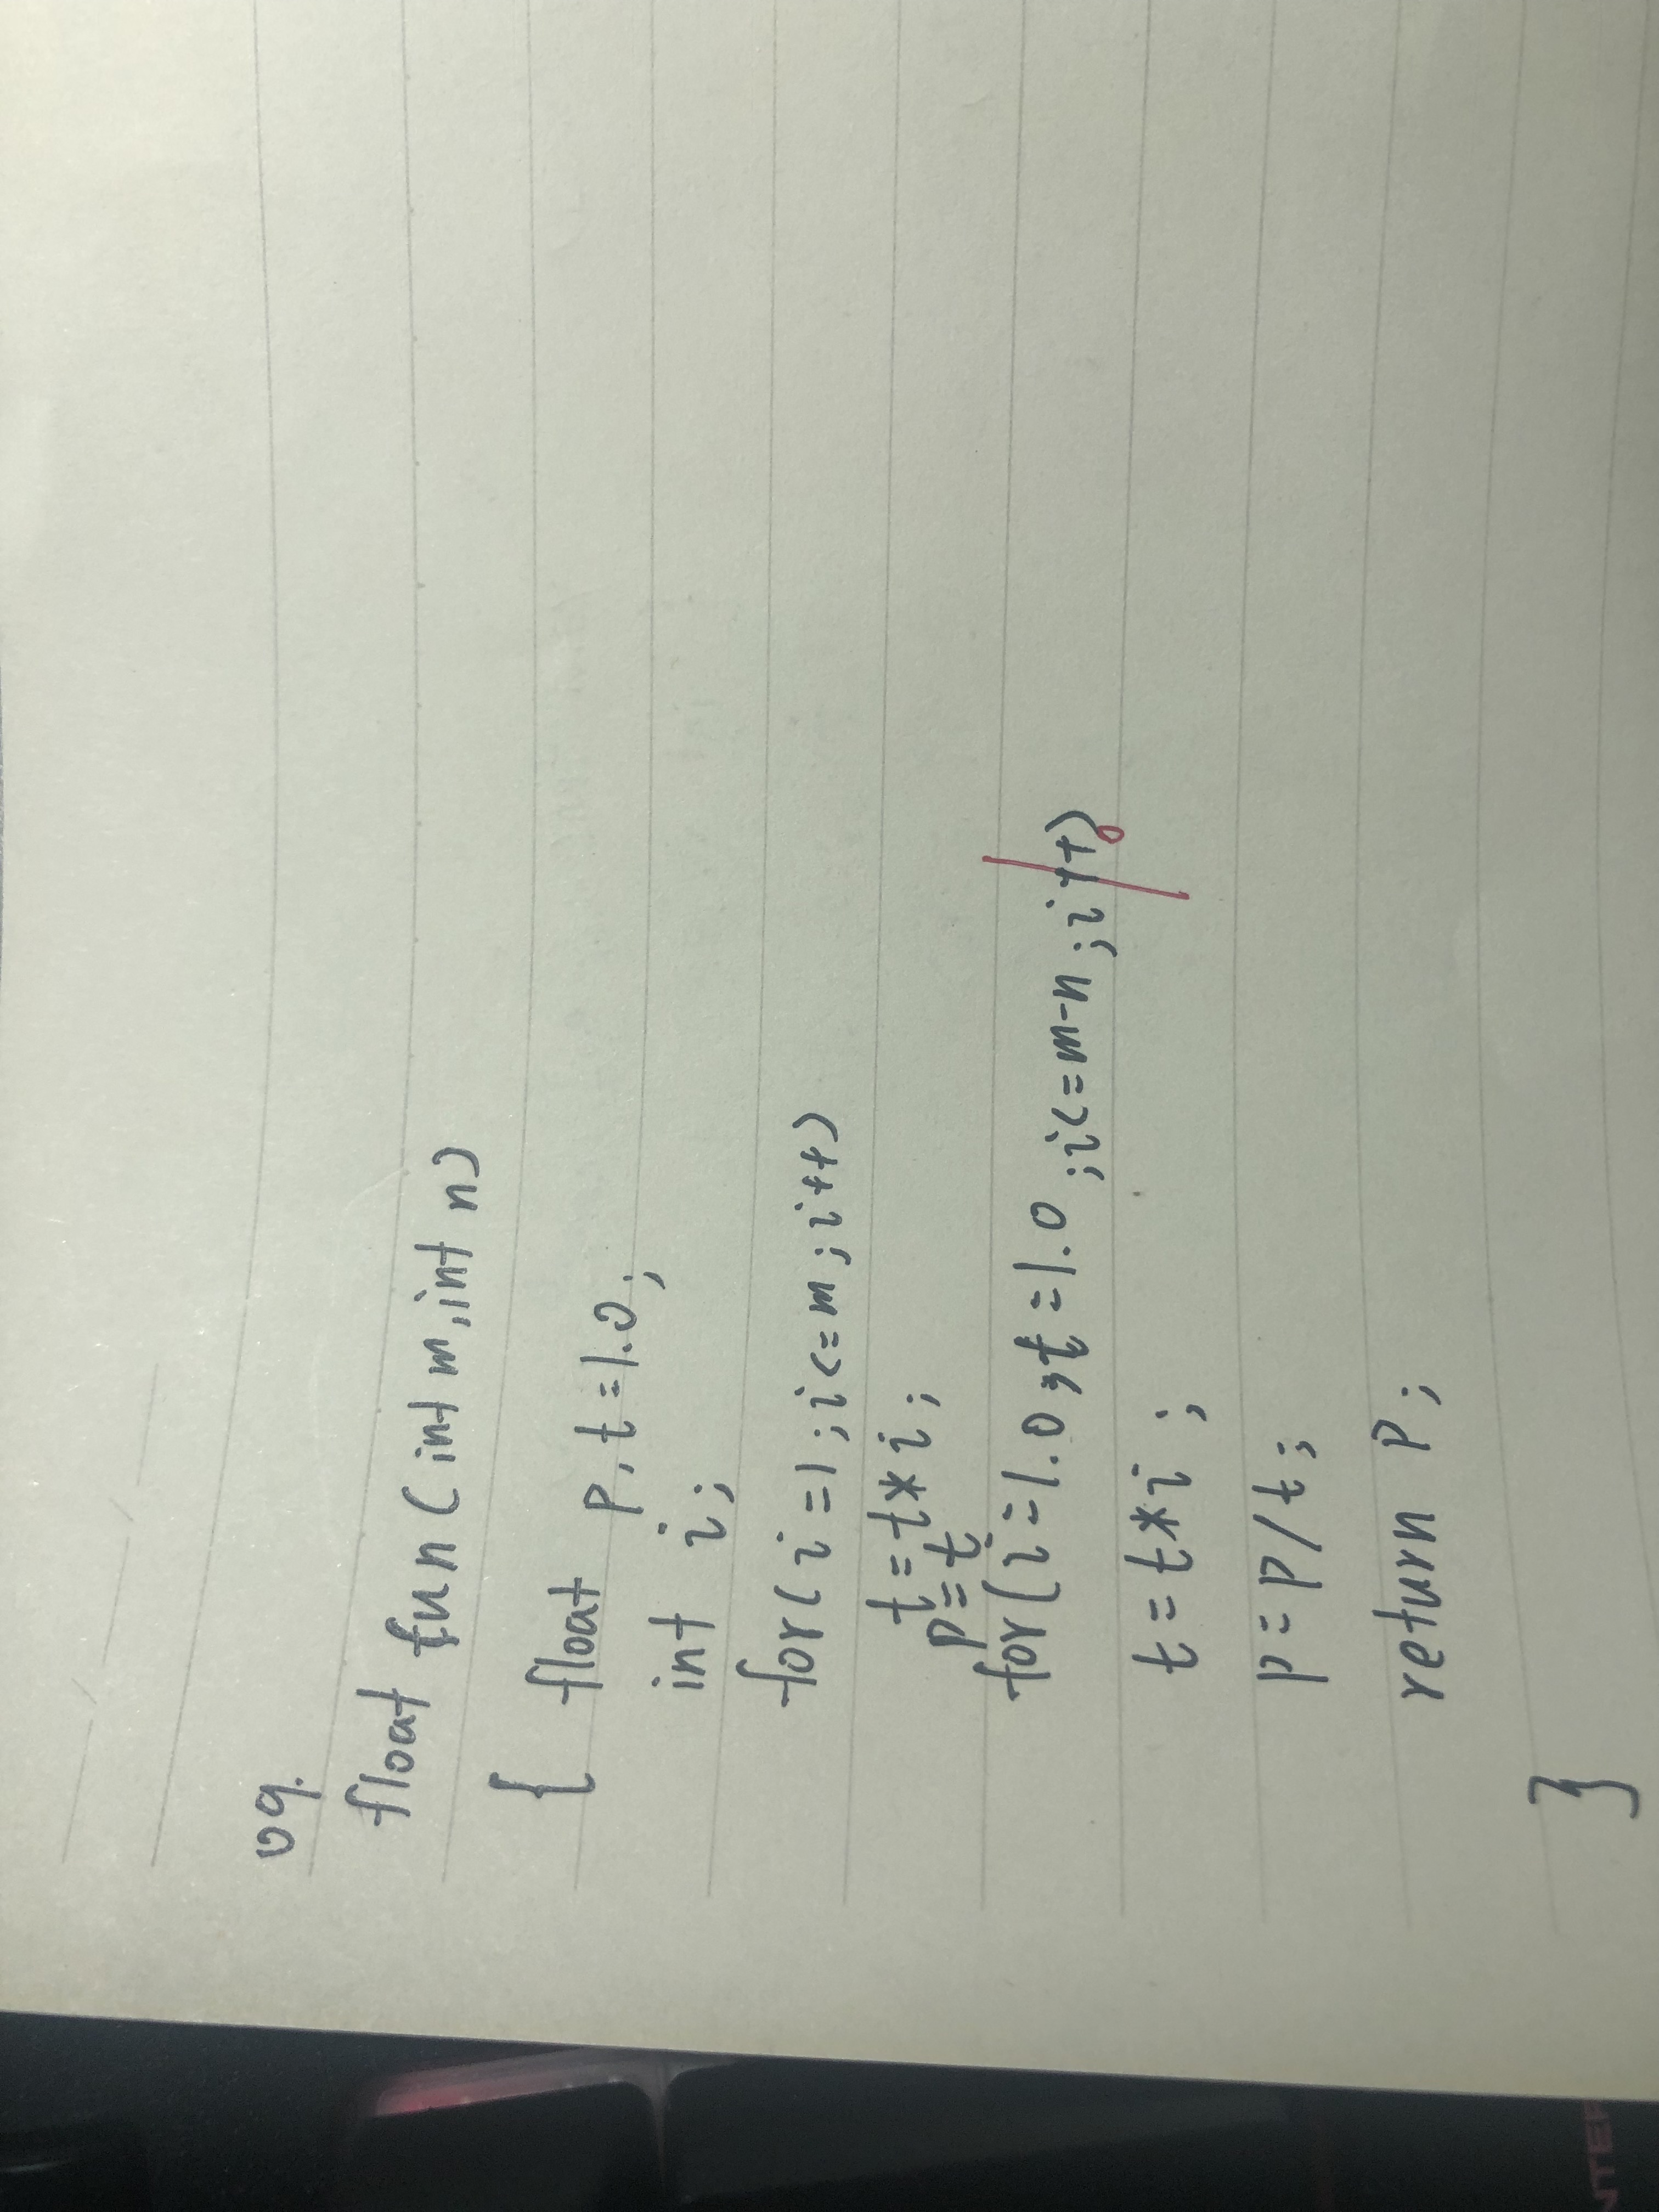 09.
float fun(int m,int n)
{ float p,t=1.0;
int i;
for(i=1;i<=m;i++)
t=t*i;
p=t;
for(i=1.0,t=1.0;i<=m-n;i++)
t=t*i;
p=p/t;
return p;
}